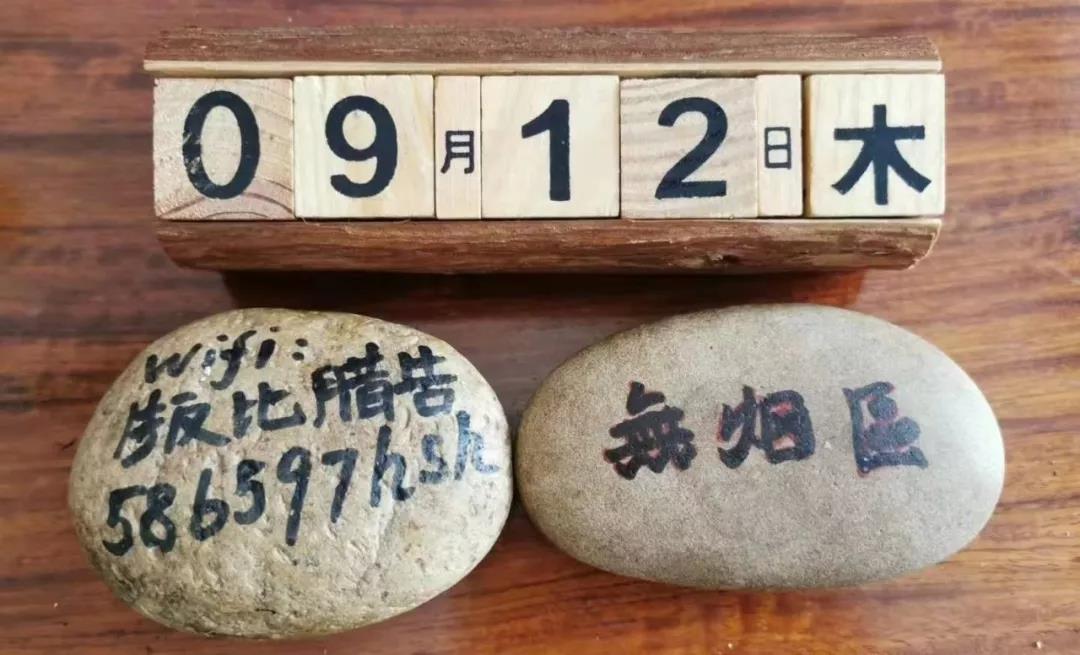 09月12日 木
wifi:
版比腊告
586597hsh
無烟區